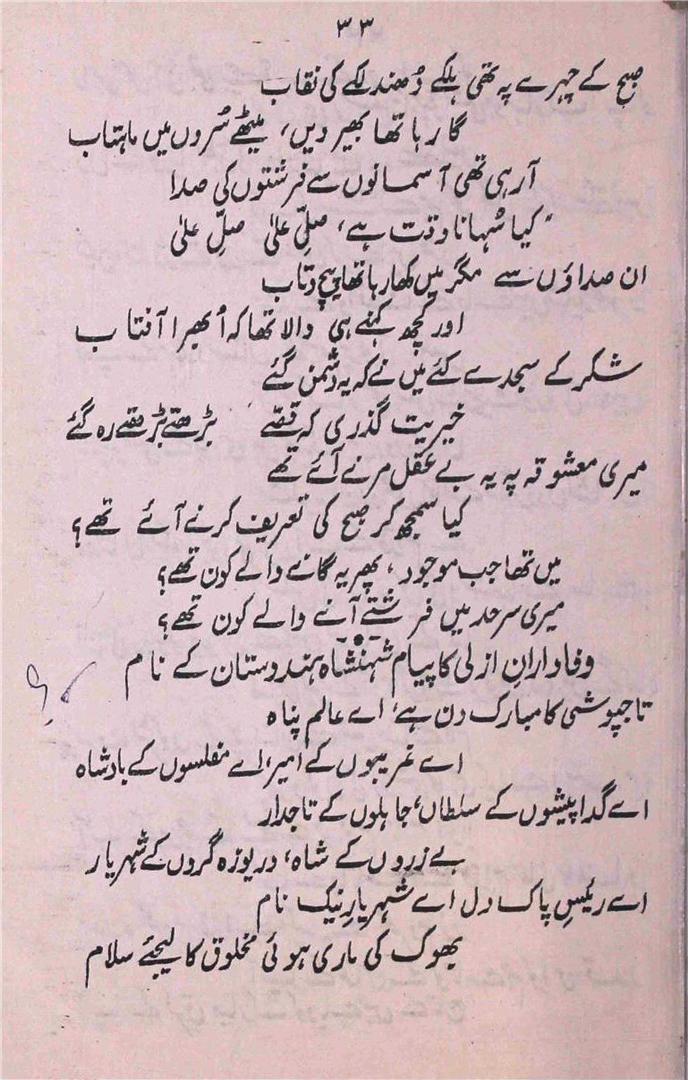 ۳۳
صبح کے چہرے پہ تھی ہلکے دُھندلکے کی نقاب
گا رہا تھا بھیرویں، میٹھے سُروں میں ماہتاب
آ رہی تھی آسمانوں سے فرشتوں کی صدا
"کیا سُہانا وقت ہے، صلِّ علیٰ صلِّ علیٰ
ان صداؤں سے مگر میں کھا رہا تھا پیچ و تاب
اور کچھ کہنے ہی والا تھا کہ اُبھرا آفتاب
شکر کے سجدے کئے میں نے کہ یہ دشمن گئے
خیریت گذری کہ قصّے بڑھتے بڑھتے رہ گئے
میری معشوقہ پہ یہ بے عقل مرنے آئے تھے
کیا سمجھ کر صبح کی تعریف کرنے آئے تھے؟
میں تھا جب موجود، پھر یہ گانے والے کون تھے؟
میری سرحد میں فرشتے آنے والے کون تھے؟
وفادارانِ ازلی کا پیام شہنشاہ ہندوستان کے نام
تاجپوشی کا مبارک دن ہے، اے عالم پناہ
اے غریبوں کے امیر، اے مفلسوں کے بادشاہ
اے گدا پیشوں کے سلطاں، جاہلوں کے تاجدار
بے زروں کے شاہ، دریوزہ گروں کے شہریار
اے رئیسِ پاک دل اے شہریارِ نیک نام
بھوک کی ماری ہوئی مخلوق کا لیجئے سلام